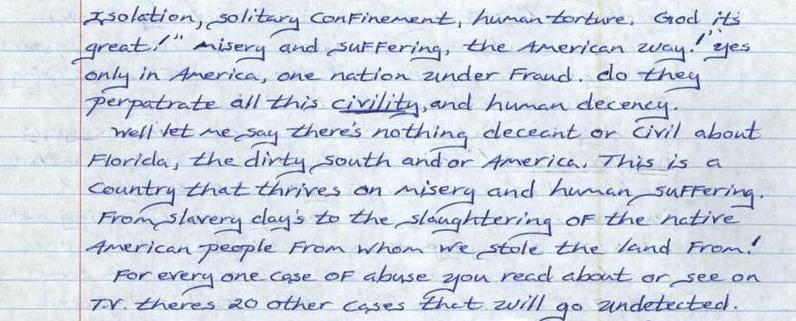 Isolation, solitary confinement, human torture. God its
great!" misery and suffering, the American way! yes
only in America, one nation under Fraud. do they
perpatrate all this civility, and human decency.
Well let me say there's nothing deceant or civil about
Florida, the dirty south and or America. This is a
Country that thrives on misery and human suffering.
From slavery day's to the slaughtering of the native
American people From whom we stole the land From!
For every one case of abuse you read about or see on
T.V. theres 20 other cases that will go undetected.